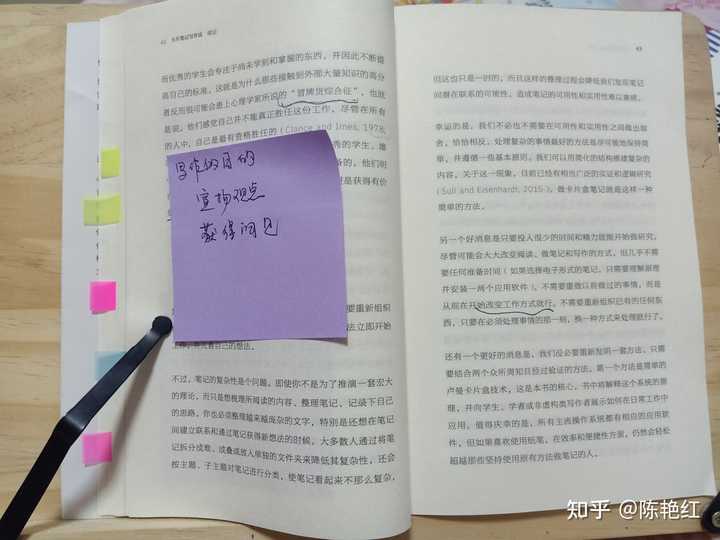 卡片笔记写作法
而优秀的学生会专注于尚未学到和掌握的东西，并因此不断提
高自己的标准。这就是为什么那些接触到外部大量知识的高分
者反而很可能会患上心理学家所说的“冒牌货综合征”，也就
是说，他们感觉自己并不能真正胜任这份工作，尽管在所有
的人中，自己是最有资格胜任的（Clance and Imes, 1978,
秀的学生，
备的，他们明
是获得有价
写作的目的
宣扬观点
获得洞见
要重新组织
法立即开始
不过，笔记的复杂性是个问题。即使你不是为了推演一套宏大
的理论，而只是想梳理所阅读的内容、整理笔记、记录下自己
的思路，你也必须整理越来越庞杂的文字，特别是还想在笔记
间建立联系和通过笔记获得新想法的时候。大多数人通过将笔
记拆分成堆、或叠或放入单独的文件夹来降低其复杂性，还会
按主题、子主题对笔记进行分类，使笔记看起来不那么复杂，
43
但这也只是一时的，而且这样的整理过程会降低我们发现笔记
间潜在联系的可能性，造成笔记的可用性和实用性难以兼顾。
幸运的是，我们不必也不需要在可用性和实用性之间做出取
舍，恰恰相反，处理复杂的事情最好的方法是尽可能地保持简
单，并遵循一些基本原则。我们可以用简化的结构搭建复杂的
内容。关于这一现象，目前已经有相当广泛的实证和逻辑研究
（Sull and Eisenhardt, 2015）。做卡片盒笔记就是这样一种
简单的方法。
另一个好消息是只要投入很少的时间和精力就能开始做研究。
尽管可能会大大改变阅读、做笔记和写作的方式，但几乎不需
要任何准备时间（如果选择电子形式的笔记，只需要理解原理
并安装一两个应用软件）。不需要重做以前做过的事情，而是
从现在开始改变工作方式就行。不需要重新组织已有的任何东
西，只要在必须处理事情的那一刻，换一种方式来处理就行了。
还有一个更好的消息是，我们没必要重新发明一套方法，只需
要结合两个众所周知且经过验证的方法。第一个方法是简单的
卢曼卡片盒技术，这是本书的核心，书中将解释这个系统的原
理，并向学生、学者或非虚构类写作者展示如何在日常工作中
应用。值得庆幸的是，所有主流操作系统都有相应的应用软
件，但如果喜欢使用纸笔，在效率和便捷性方面，仍然会轻松
超越那些坚持使用原有方法做笔记的人。
知乎 @陈艳红